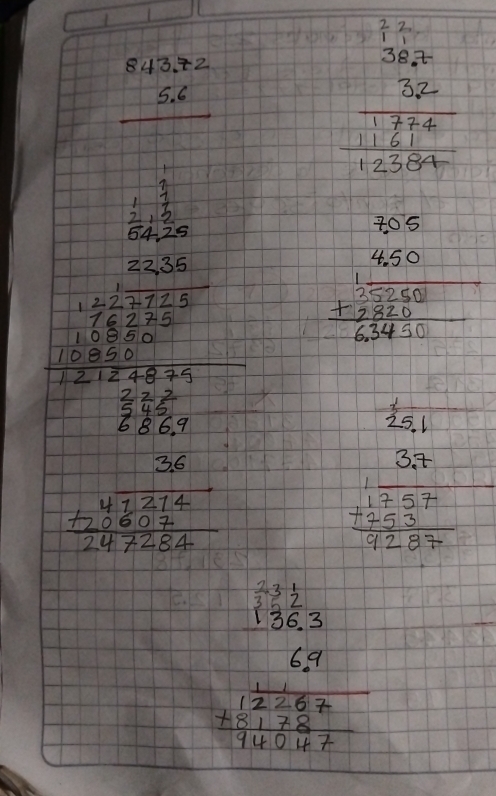 843.72
5.6
2 2
1 1
38.7
3.2
1774
1161
12384
1
2
1 1
2 1 2
54.25
22.35
1
1227125
16275
10850
10850
12124875
7.05
4.50
1
35250
+2820
6.3450
2 2 2
5 4 5
686.9
3.6
41214
+20607
247284
25.1
3.7
1
1757
+753
9287
2 3 1
3 5 2
136.3
6.9
1 1
12267
+8178
94047